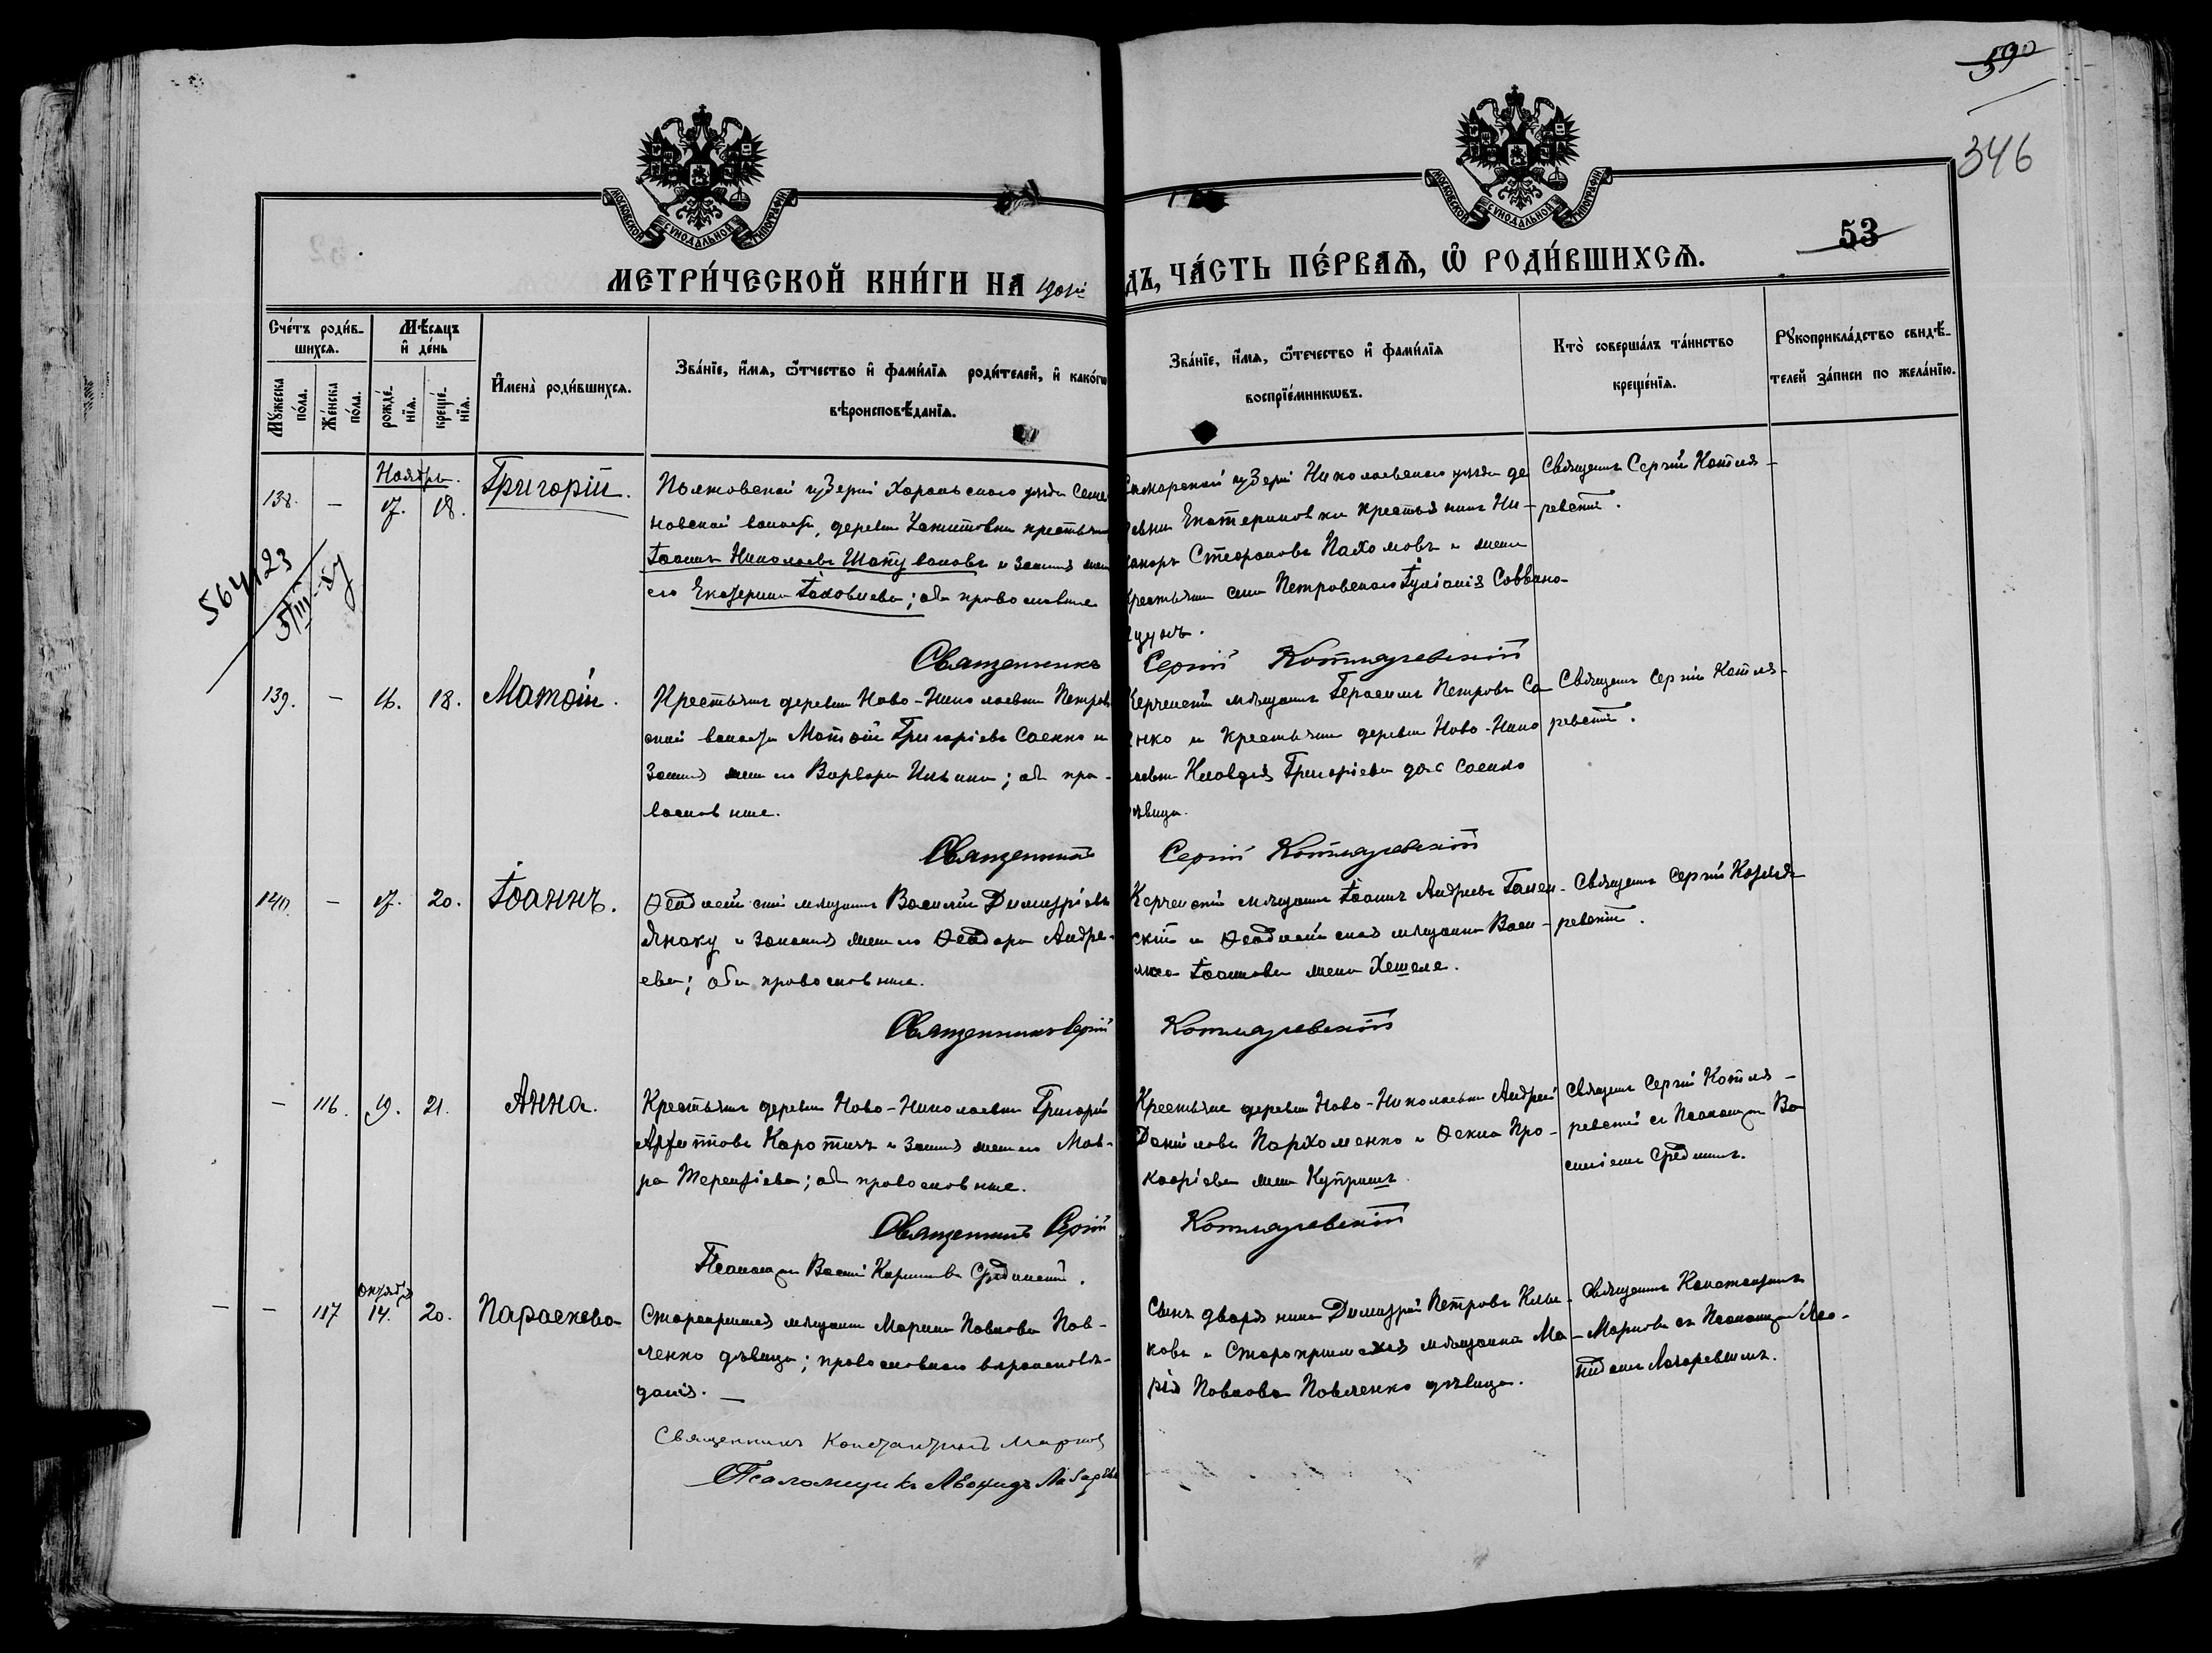 590
346
53
МОСКОВСКОЙ СУНОДАЛЬНОЙ ТИПОГРАФІИ
МОСКОВСКОЙ СУНОДАЛЬНОЙ ТИПОГРАФІИ
МЕТРИ́ЧЕСКОЙ КНИ́ГИ НА
ДЪ, ЧА́СТЬ ПЕ́РВАѦ, Ѡ҆ РОДИ́ВШИХСѦ.
Сче́тъ роди́в-
шихсѧ.
Мꙋ́жеска по́ла.
Же́нска по́ла.
Мѣ́сяцъ
и҆ де́нь
рожде́-
нїѧ.
креще́-
нїѧ.
И҆мена̀ роди́вшихсѧ.
Зва́нїе, и҆́мѧ, ѻ҆́тчество и҆ фами́лїѧ роди́телей, и҆ како́гѡ
вѣроисповѣ́данїѧ.
Зва́нїе, и҆́мѧ, ѻ҆́течество и҆ фами́лїѧ
воспрїе́мникѡвъ.
Кто̀ соверша́лъ та́инство
креще́нїѧ.
Рꙋкоприкла́дство свидѣ́-
телей за́писи по жела́нїю.
Ноября.
138. — 17. 18. Григорій.
Полтовской губерніи Хорольскаго уѣзда Семе
новской волости, деревни крестьянинъ
Іоаннъ Николаевъ Шаповаловъ и законная жена
его Екатерина Іаковлева; оба православные
Николаевскаго уѣзда де
ревни Екатериновки крестьянинъ Ни-
каноръ Стефановъ Пахомовъ и
крестьянка села Петровскаго Іуліанія
Священникъ Сергій Котля-
ревскій.
564123
5/III-57
Священникъ Сергій Котляревскій
139. — 16. 18. Матѳій.
Крестьянинъ деревни Ново-Николаевки Петров
ской волости Матѳій Григоріевъ Саенко и
законная жена его Варвара Ильина; оба пра-
вославные.
Керченскій мѣщанинъ Герасимъ Петровъ Са
енко и крестьянка деревни Ново-Нико
лаевки Клавдія Григоріева дочь Саенко
дѣвица.
Священникъ Сергій Котля-
ревскій.
Священникъ Сергій Котляревскій
140. — 17. 20. Іоаннъ.
Ѳеодосійскій мѣщанинъ Василій Димитріевъ
Янаку и законная жена его Ѳеодора Андре-
ева; оба православные.
Керченскій мѣщанинъ Іоаннъ Андреевъ
скій и Ѳеодосійская мѣщанка Васи-
лиса Іоаннова жена Хешеле.
Священникъ Сергій Котля-
ревскій.
Священникъ Сергій Котляревскій
— 116. 19. 21. Анна.
Крестьянинъ деревни Ново-Николаевки Григорій
Коротичъ и законная жена его Мав-
ра Терентіева; оба православные.
Крестьяне деревни Ново-Николаевки Андрей
Даніиловъ Пархоменко и Ѳекла Про-
копіева жена Купришъ
Священникъ Сергій Котля-
ревскій съ Псаломщ. Ва
силіемъ
Священникъ Сергій Котляревскій
Псаломщикъ Василій
— — 117 октября 14. 20. Параскева
Старокрымская мѣщанка Марина Павлова Пав-
ленко дѣвица; православнаго вѣроисповѣ-
данія. —
Сынъ дворянина Димитрій Петровъ
ковъ и Старокрымская мѣщанка Ма-
рія Павлова Павленко дѣвица.
Священникъ Константинъ
Марковъ съ Псаломщ. Лео-
нидомъ Лазаревымъ.
Священникъ Константинъ Марковъ
Псаломщикъ Леонидъ Лазаревъ